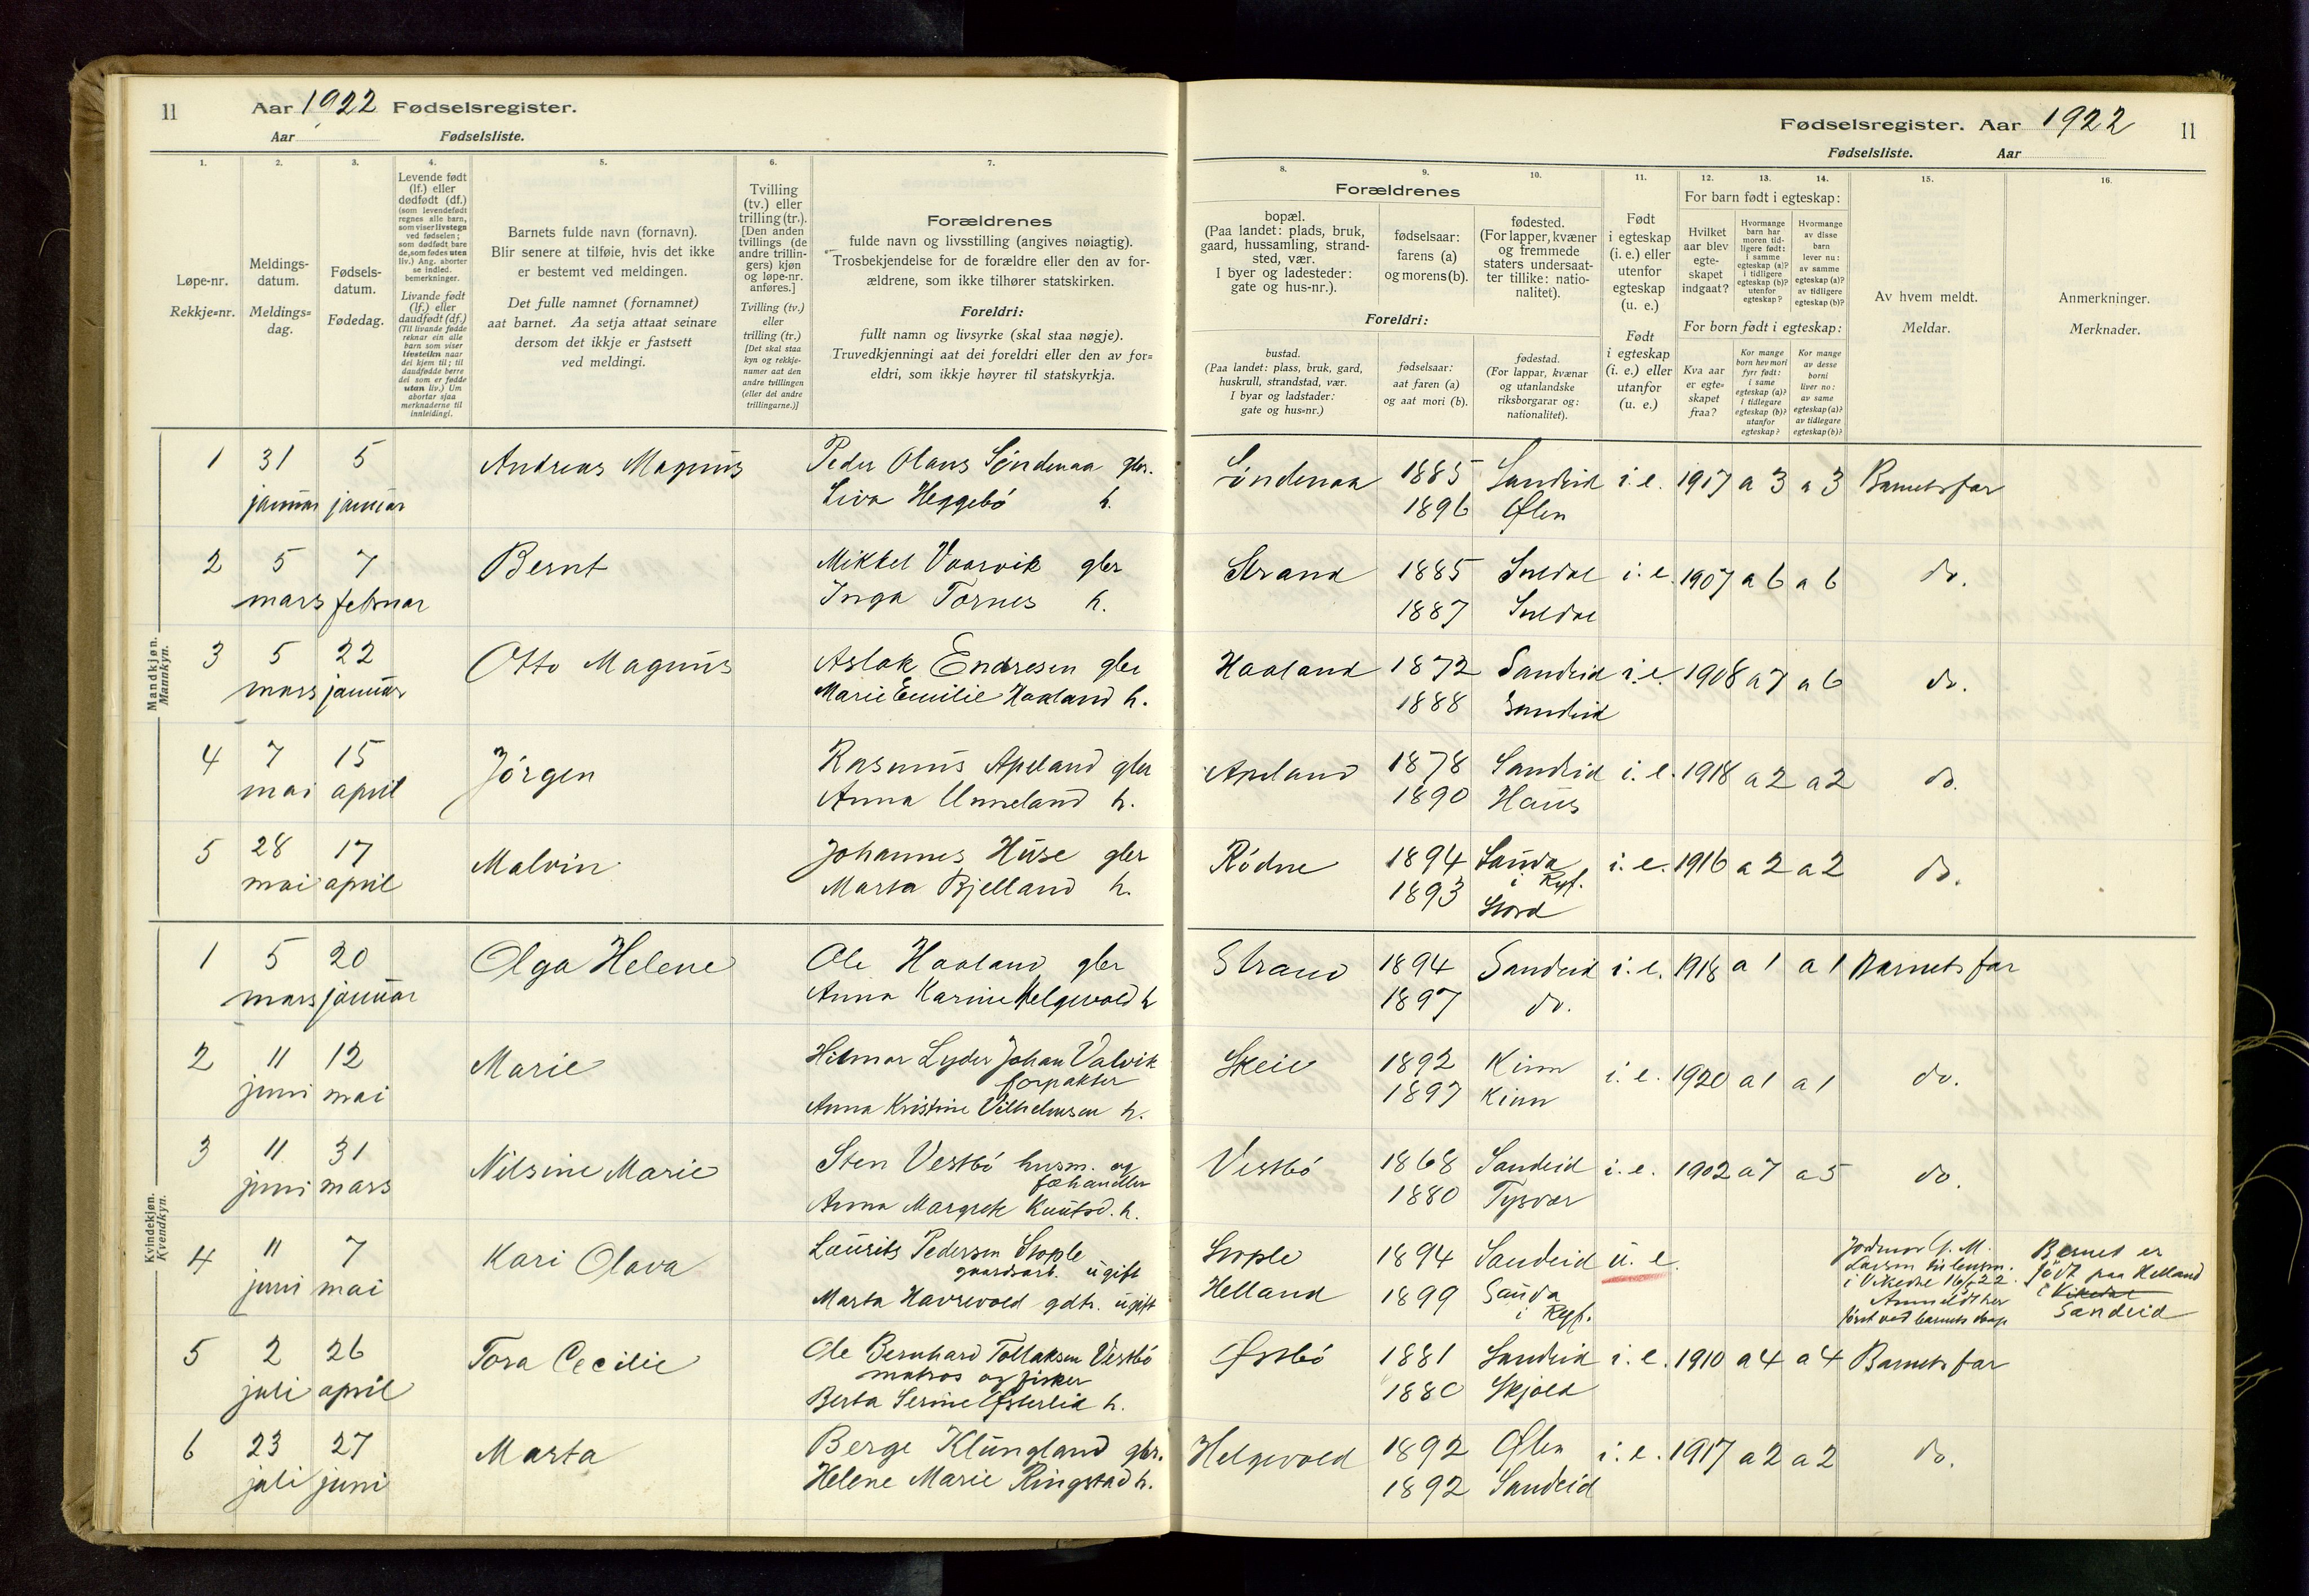 11 Aar 1922 Fødselsregister.
Aar Fødselsliste.
Fødselsregister. Aar 1922 11
Fødselsliste. Aar
1. 2. 3. 4. 5. 6. 7.
Løpe-nr.
Rekkje=nr.
Meldings-
datum.
Meldings=
dag.
Fødsels-
datum.
Fødedag.
Levende født
(lf.) eller
dødfødt (df.)
(som levendefødt
regnes alle barn,
som viser livstegn
ved fødselen;
som dødfødt bare
de, som fødes uten
liv.) Ang. aborter
se indled.
bemerkninger.
Livande født
(lf.) eller
daudfødt (df.)
(Til livande fødde
reknar ein alle
barn som viser
livsteikn naar
dei kjem til; til
daudfødde berre
dei som er fødde
utan liv.) Um
abortar sjaa
merknaderne til
innleidingi.
Barnets fulde navn (fornavn).
Blir senere at tilføie, hvis det ikke
er bestemt ved meldingen.
Det fulle namnet (fornamnet)
aat barnet. Aa setja attaat seinare
dersom det ikkje er fastsett
ved meldingi.
Tvilling
(tv.) eller
trilling (tr.).
[Den anden
tvillings (de
andre trillin-
gers) kjøn
og løpe-nr.
anføres.]
Tvilling (tv.)
eller
trilling (tr.)
[Det skal staa
kyn og rekkje-
numer aat den
andre tvillingen
(eller dei andre
trillingarne.)]
Forældrenes
fulde navn og livsstilling (angives nøiagtig).
Trosbekjendelse for de forældre eller den av for-
ældrene, som ikke tilhører statskirken.
Foreldri:
fullt namn og livsyrke (skal staa nøgje).
Truvedkjenningi aat dei foreldri eller den av for=
eldri, som ikkje høyrer til statskyrkja.
8. 9. 10. 11. 12. 13. 14. 15. 16.
Forældrenes
bopæl.
(Paa landet: plads, bruk,
gaard, hussamling, strand-
sted, vær.
I byer og ladesteder:
gate og hus-nr.).
fødselsaar:
farens (a)
og morens (b).
fødested.
(For lapper, kvæner
og fremmede
staters undersaat-
ter tillike: natio-
nalitet).
Foreldri:
bustad.
(Paa landet: plass, bruk, gard,
huskrull, strandstad, vær.
I byar og ladstader:
gate og hus=nr.)
fødselsaar:
aat faren (a)
og aat mori (b).
fødestad.
(For lappar, kvænar
og utanlandske
riksborgarar og:
nationalitet).
Født
i egteskap
(i. e.) eller
utenfor
egteskap
(u. e.)
Født
i egteskap
(i. e.) eller
utanfor
(u. e.)
For barn født i egteskap:
Hvilket
aar blev
egte-
skapet
indgaat?
Hvormange
barn har
moren tid-
ligere født:
i samme
egteskap (a)?
i tidligere
egteskap (b)?
utenfor
egteskap?
Hvormange
av disse
barn
lever nu:
av samme
egteskap (a)?
av tidligere
egteskap (b)?
For born født i egteskap:
Kva aar
er egte=
skapet
fraa?
Kor mange
born hev mori
fyrr født:
i same
egteskap (a)?
i tidlegare
egteskap (b)?
utanfor
egteskap?
Kor mange
av desse
borni
liver no:
av same
egteskap (a)?
av tidlegare
egteskap (b)?
Av hvem meldt.
Meldar.
Anmerkninger.
Merknader.
Mandkjøn.
Mannkyn.
1 31 5 Andreas Magnus Peder Olaus Søndenaa gbr. Søndenaa 1885 Sandeid i.e. 1917 a 3 a 3 Barnets far
januar januar Siva Heggebø h. 1896 Ølen
2 5 7 Bernt Mikkel Vaarvik gbr Strand 1885 Suldal i.e. 1907 a 6 a 6 do.
mars februar Inga Tornes h. 1887 Suldal
3 5 22 Otto Magnus Aslak Endresen gbr Haaland 1872 Sandeid i.e. 1908 a 7 a 6 do.
mars januar Marie Emilie Haaland h. 1888 Sandeid
4 7 15 Jørgen Rasmus Apeland gbr Apeland 1878 Sandeid i.e. 1918 a 2 a 2 do.
mai april Anna Unneland h. 1890 Haus
5 28 17 Malvin Johannes Huse gbr Rødne 1894 Sauda i Ryf. i.e. 1916 a 2 a 2 do.
mai april Marta Bjelland h. 1893 Stord
Kvindekjøn.
Kvendkyn.
1 5 20 Olga Helene Ole Haaland gbr Strand 1894 Sandeid i.e. 1918 a 1 a 1 Barnets far
mars januar Anna Karine Helgevold h 1897 do.
2 11 12 Marie Hilmar Lyder Johan Valvik Skeie 1892 Kinn i.e. 1920 a 1 a 1 do.
forpakter
juni mai Anna Kristine Vilhelmsen h. 1897 Kinn
3 11 31 Nilsine Marie Sten Vestbø husm. og Vestbø 1868 Sandeid i.e. 1902 a 7 a 5 do.
fæhandler
juni mars Anna Margrete Knutsd. h. 1880 Tysvær
4 11 7 Kari Olava Laurits Pedersen Stople Stople 1894 Sandeid u. e. Jordmor G. M. Barnet er
gaardsarb. ugift Larsen til lensm. født paa Helland
juni mai Marta Havrevold gdtr. ugift Helland 1899 Sauda i Ryf. i Vikedal 16/5 22. i Vikedal
Anmeldt her Sandeid
først ved barnets daap
5 2 26 Tora Cecilie Ole Bernhard Tollaksen Vestbø Østbø 1881 Sandeid i.e. 1910 a 4 a 4 Barnets far
matros og fisker
juli april Berta Serine Østerlid h. 1880 Skjold
6 23 27 Marta Berge Klungland gbr. Helgevold 1892 Ølen i.e. 1917 a 2 a 2 do.
juli juni Helene Marie Ringstad h. 1892 Sandeid